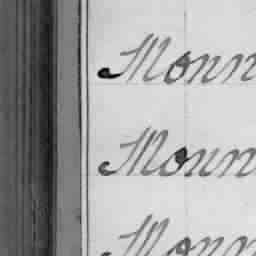 Monn
Monn
Monn